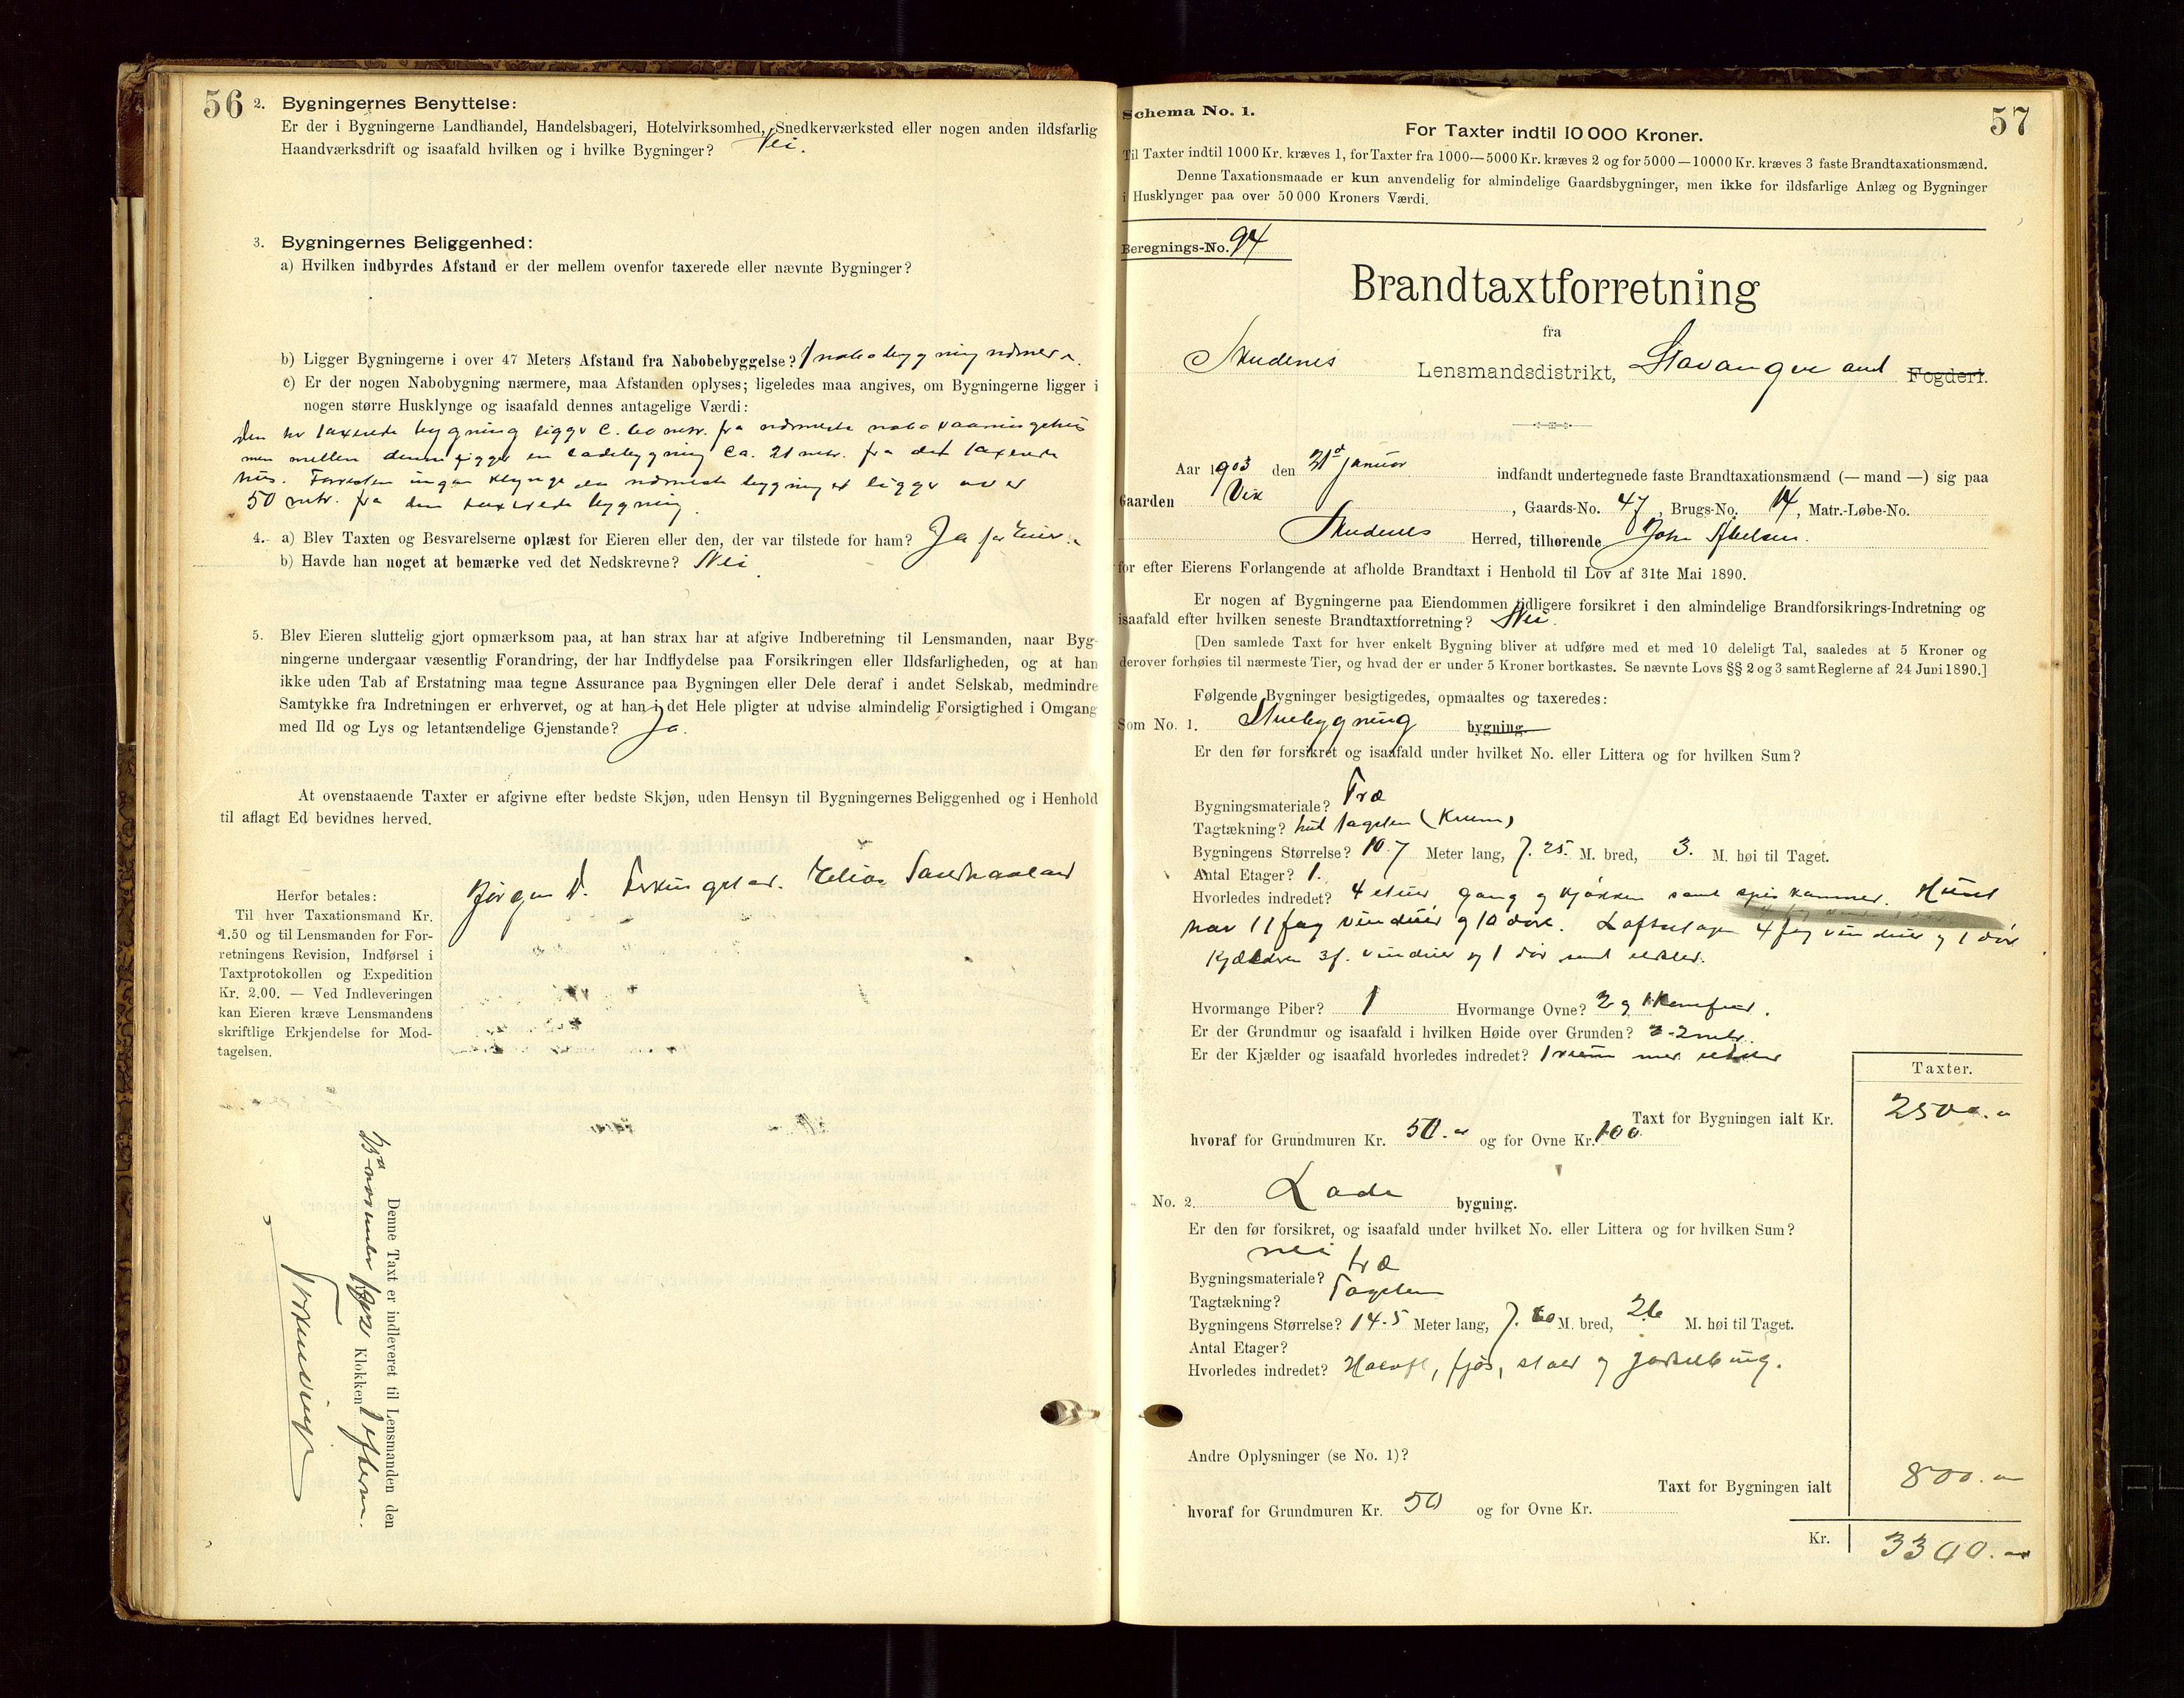 56
2. Bygningernes Benyttelse:
Er der i Bygningerne Landhandel, Handelsbageri, Hotelvirksomhed, Snedkerværksted eller nogen anden ildsfarlig
Haandværksdrift og isaafald hvilken og i hvilke Bygninger? Nei.
3. Bygningernes Beliggenhed:
a) Hvilken indbyrdes Afstand er der mellem ovenfor taxerede eller nævnte Bygninger?
b) Ligger Bygningerne i over 47 Meters Afstand fra Nabobebyggelse? 1 nabobygning nærmere.
c) Er der nogen Nabobygning nærmere, maa Afstanden oplyses; ligeledes maa angives, om Bygningerne ligger i
nogen større Husklynge og isaafald dennes antagelige Værdi:
den her taxerede bygning ligger c. 60 metr. fra nærmeste nabo vaaningshus
men mellem denne ligger en ladebygning ca. 21 metr. fra det taxerede
hus. Forresten ingen klynge den nærmeste bygning ligger over
50 metr. fra den taxerede bygning.
4. a) Blev Taxten og Besvarelserne oplæst for Eieren eller den, der var tilstede for ham? Ja for Eier
b) Havde han noget at bemærke ved det Nedskrevne? Nei
5. Blev Eieren sluttelig gjort opmærksom paa, at han strax har at afgive Indberetning til Lensmanden, naar Byg-
ningerne undergaar væsentlig Forandring, der har Indflydelse paa Forsikringen eller Ildsfarligheden, og at han
ikke uden Tab af Erstatning maa tegne Assurance paa Bygningen eller Dele deraf i andet Selskab, medmindre
Samtykke fra Indretningen er erhvervet, og at han i det Hele pligter at udvise almindelig Forsigtighed i Omgang
med Ild og Lys og letantændelige Gjenstande? Ja.
At ovenstaaende Taxter er afgivne efter bedste Skjøn, uden Hensyn til Bygningernes Beliggenhed og i Henhold
til aflagt Ed bevidnes herved.
Jørgen D. Elias Sandhaaland
Herfor betales:
Til hver Taxationsmand Kr.
1.50 og til Lensmanden for For-
retningens Revision, Indførsel i
Taxtprotokollen og Expedition
Kr. 2.00. — Ved Indleveringen
kan Eieren kræve Lensmandens
skriftlige Erkjendelse for Mod-
tagelsen.
Denne Taxt er indleveret til Lensmanden den
november Klokken 1 efterm.
57
Schema No. 1.
For Taxter indtil 10 000 Kroner.
Til Taxter indtil 1000 Kr. kræves 1, for Taxter fra 1000—5000 Kr. kræves 2 og for 5000—10000 Kr. kræves 3 faste Brandtaxationsmænd.
Denne Taxationsmaade er kun anvendelig for almindelige Gaardsbygninger, men ikke for ildsfarlige Anlæg og Bygninger
i Husklynger paa over 50 000 Kroners Værdi.
Beregnings-No. 94
Brandtaxtforretning
fra
Skudenes Lensmandsdistrikt, Stavanger amt Fogderi.
Aar 1903 den 21d Januar indfandt undertegnede faste Brandtaxationsmænd (— mand —) sig paa
Gaarden Vik, Gaards-No. 47, Brugs-No. 14, Matr.-Løbe-No.
Skudenes Herred, tilhørende John
for efter Eierens Forlangende at afholde Brandtaxt i Henhold til Lov af 31te Mai 1890.
Er nogen af Bygningerne paa Eiendommen tidligere forsikret i den almindelige Brandforsikrings-Indretning og
isaafald efter hvilken seneste Brandtaxtforretning? Nei.
[Den samlede Taxt for hver enkelt Bygning bliver at udføre med et med 10 deleligt Tal, saaledes at 5 Kroner og
derover forhøies til nærmeste Tier, og hvad der er under 5 Kroner bortkastes. Se nævnte Lovs §§ 2 og 3 samt Reglerne af 24 Juni 1890.]
Følgende Bygninger besigtigedes, opmaaltes og taxeredes:
Som No. 1. Stuebygning bygning.
Er den før forsikret og isaafald under hvilket No. eller Littera og for hvilken Sum?
Bygningsmateriale? Træ
Tagtækning? tagsten (Krum)
Bygningens Størrelse? 10.7 Meter lang, 7.25. M. bred, 3. M. høi til Taget.
Antal Etager? 1.
Hvorledes indredet? 4 stuer gang og kjøkken samt spiskammer. Huset
har 11 fag vinduer og 10 døre. Loftsetagen 4 fag vinduer og 1 dør
Kjælderen 3 f. vinduer og 1 dør samt
Hvormange Piber? 1 Hvormange Ovne? 2 og 1 Komfur.
Er der Grundmur og isaafald i hvilken Høide over Grunden? 2 metr.
Er der Kjælder og isaafald hvorledes indredet? 1 rum med
Taxter.
Taxt for Bygningen ialt Kr. 2500.
hvoraf for Grundmuren Kr. 50. og for Ovne Kr. 100
No. 2. Lade bygning.
Er den før forsikret, og isaafald under hvilket No. eller Littera og for hvilken Sum?
nei
Bygningsmateriale? træ
Tagtækning? Tagsten
Bygningens Størrelse? 14.5 Meter lang, 7.60 M. bred, 2.6 M. høi til Taget.
Antal Etager?
Hvorledes indredet? fjøs, stald og
Andre Oplysninger (se No. 1)?
Taxt for Bygningen ialt 800.
hvoraf for Grundmuren Kr. 50 og for Ovne Kr.
Kr. 3300.